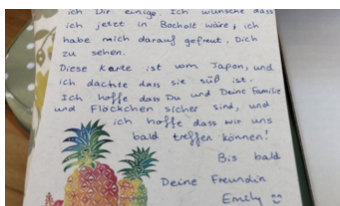 ich Dir einige. Ich wünsche dass
ich jetzt in Bocholt wäre, ich
habe mich darauf gefreut, Dich
zu sehen.
Diese Karte ist vom Japon, und
ich dachte dass sie süß ist.
Ich hoffe dass Du und Deine Familie
und Flöckchen sicher sind, und
ich hoffe dass wir uns
bald treffen können!
Bis bald
Deine Freundin
Emily